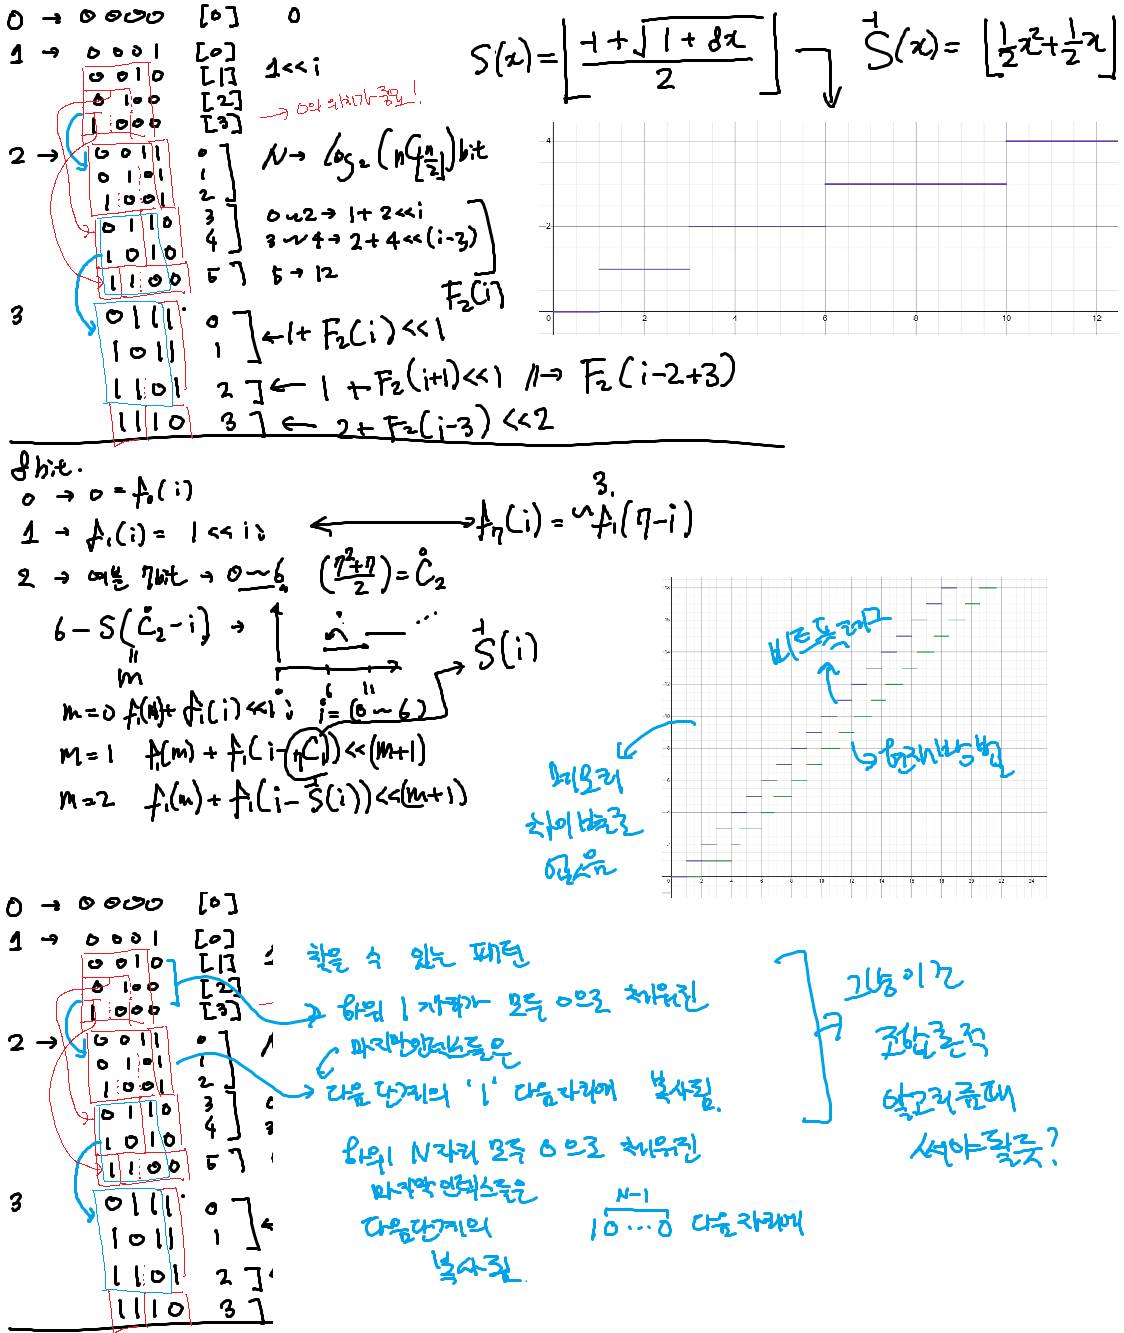 0 → 0000 [0] 0
1 → 0001 [0]
0010 [1] 1<<i
0100 [2]
1000 [3] → 0의 위치가 중요!
2 → 0011 0
0101 1
1001 2
0110 3
1010 4
1100 5
N → log₂(nC[n/2]) bit
0~2 → 1+2<<i
3~4 → 2+4<<(i-3)
5 → 12
F₂(i)
3 0111 0
1011 1
← 1+F₂(i)<<1
1101 2 ← 1+F₂(i+1)<<1 //→ F₂(i-2+3)
1110 3 ← 2+F₂(i-3)<<2
S(x)=⌊(-1+√(1+8x))/2⌋
S⁻¹(x)=⌊½x²+½x⌋
4
2
0 2 4 6 8 10 12
8bit.
0 → 0=f₀(i)
1 → f₁(i)=1<<i;
f₇(i)=~f₁(7-i)
3.
2 → 여분 7bit → 0~6 ((7²+7)/2)=C₂
6-S(C₂-i) →
m
S⁻¹(i)
m=0 f₁(m)+f₁(i)<<1; i=(0~6)
m=1 f₁(m)+f₁(i-₇C₁)<<(m+1)
m=2 f₁(m)+f₁(i-S⁻¹(i))<<(m+1)
비트폭
현재방법
메모리
차이 별로
없음
0 2 4 6 8 10 12 14 16 18 20 22 24
0 → 0000 [0]
1 → 0001 [0]
0010 [1]
0100 [2]
1000 [3]
2 → 0011 0
0101 1
1001 2
0110 3
1010 4
1100 5
3 0111 0
1011 1
1101 2
1110 3
찾을 수 있는 패턴
하위 1자리가 모두 0으로 채워진
마지막 인덱스들은
다음 단계의 '1' 다음자리에 복사됨.
하위 N자리 모두 0으로 채워진
마지막 인덱스들은
다음단계의 10...0 다음 자리에
N-1
복사됨.
조합론적
알고리즘때
써야 될듯?